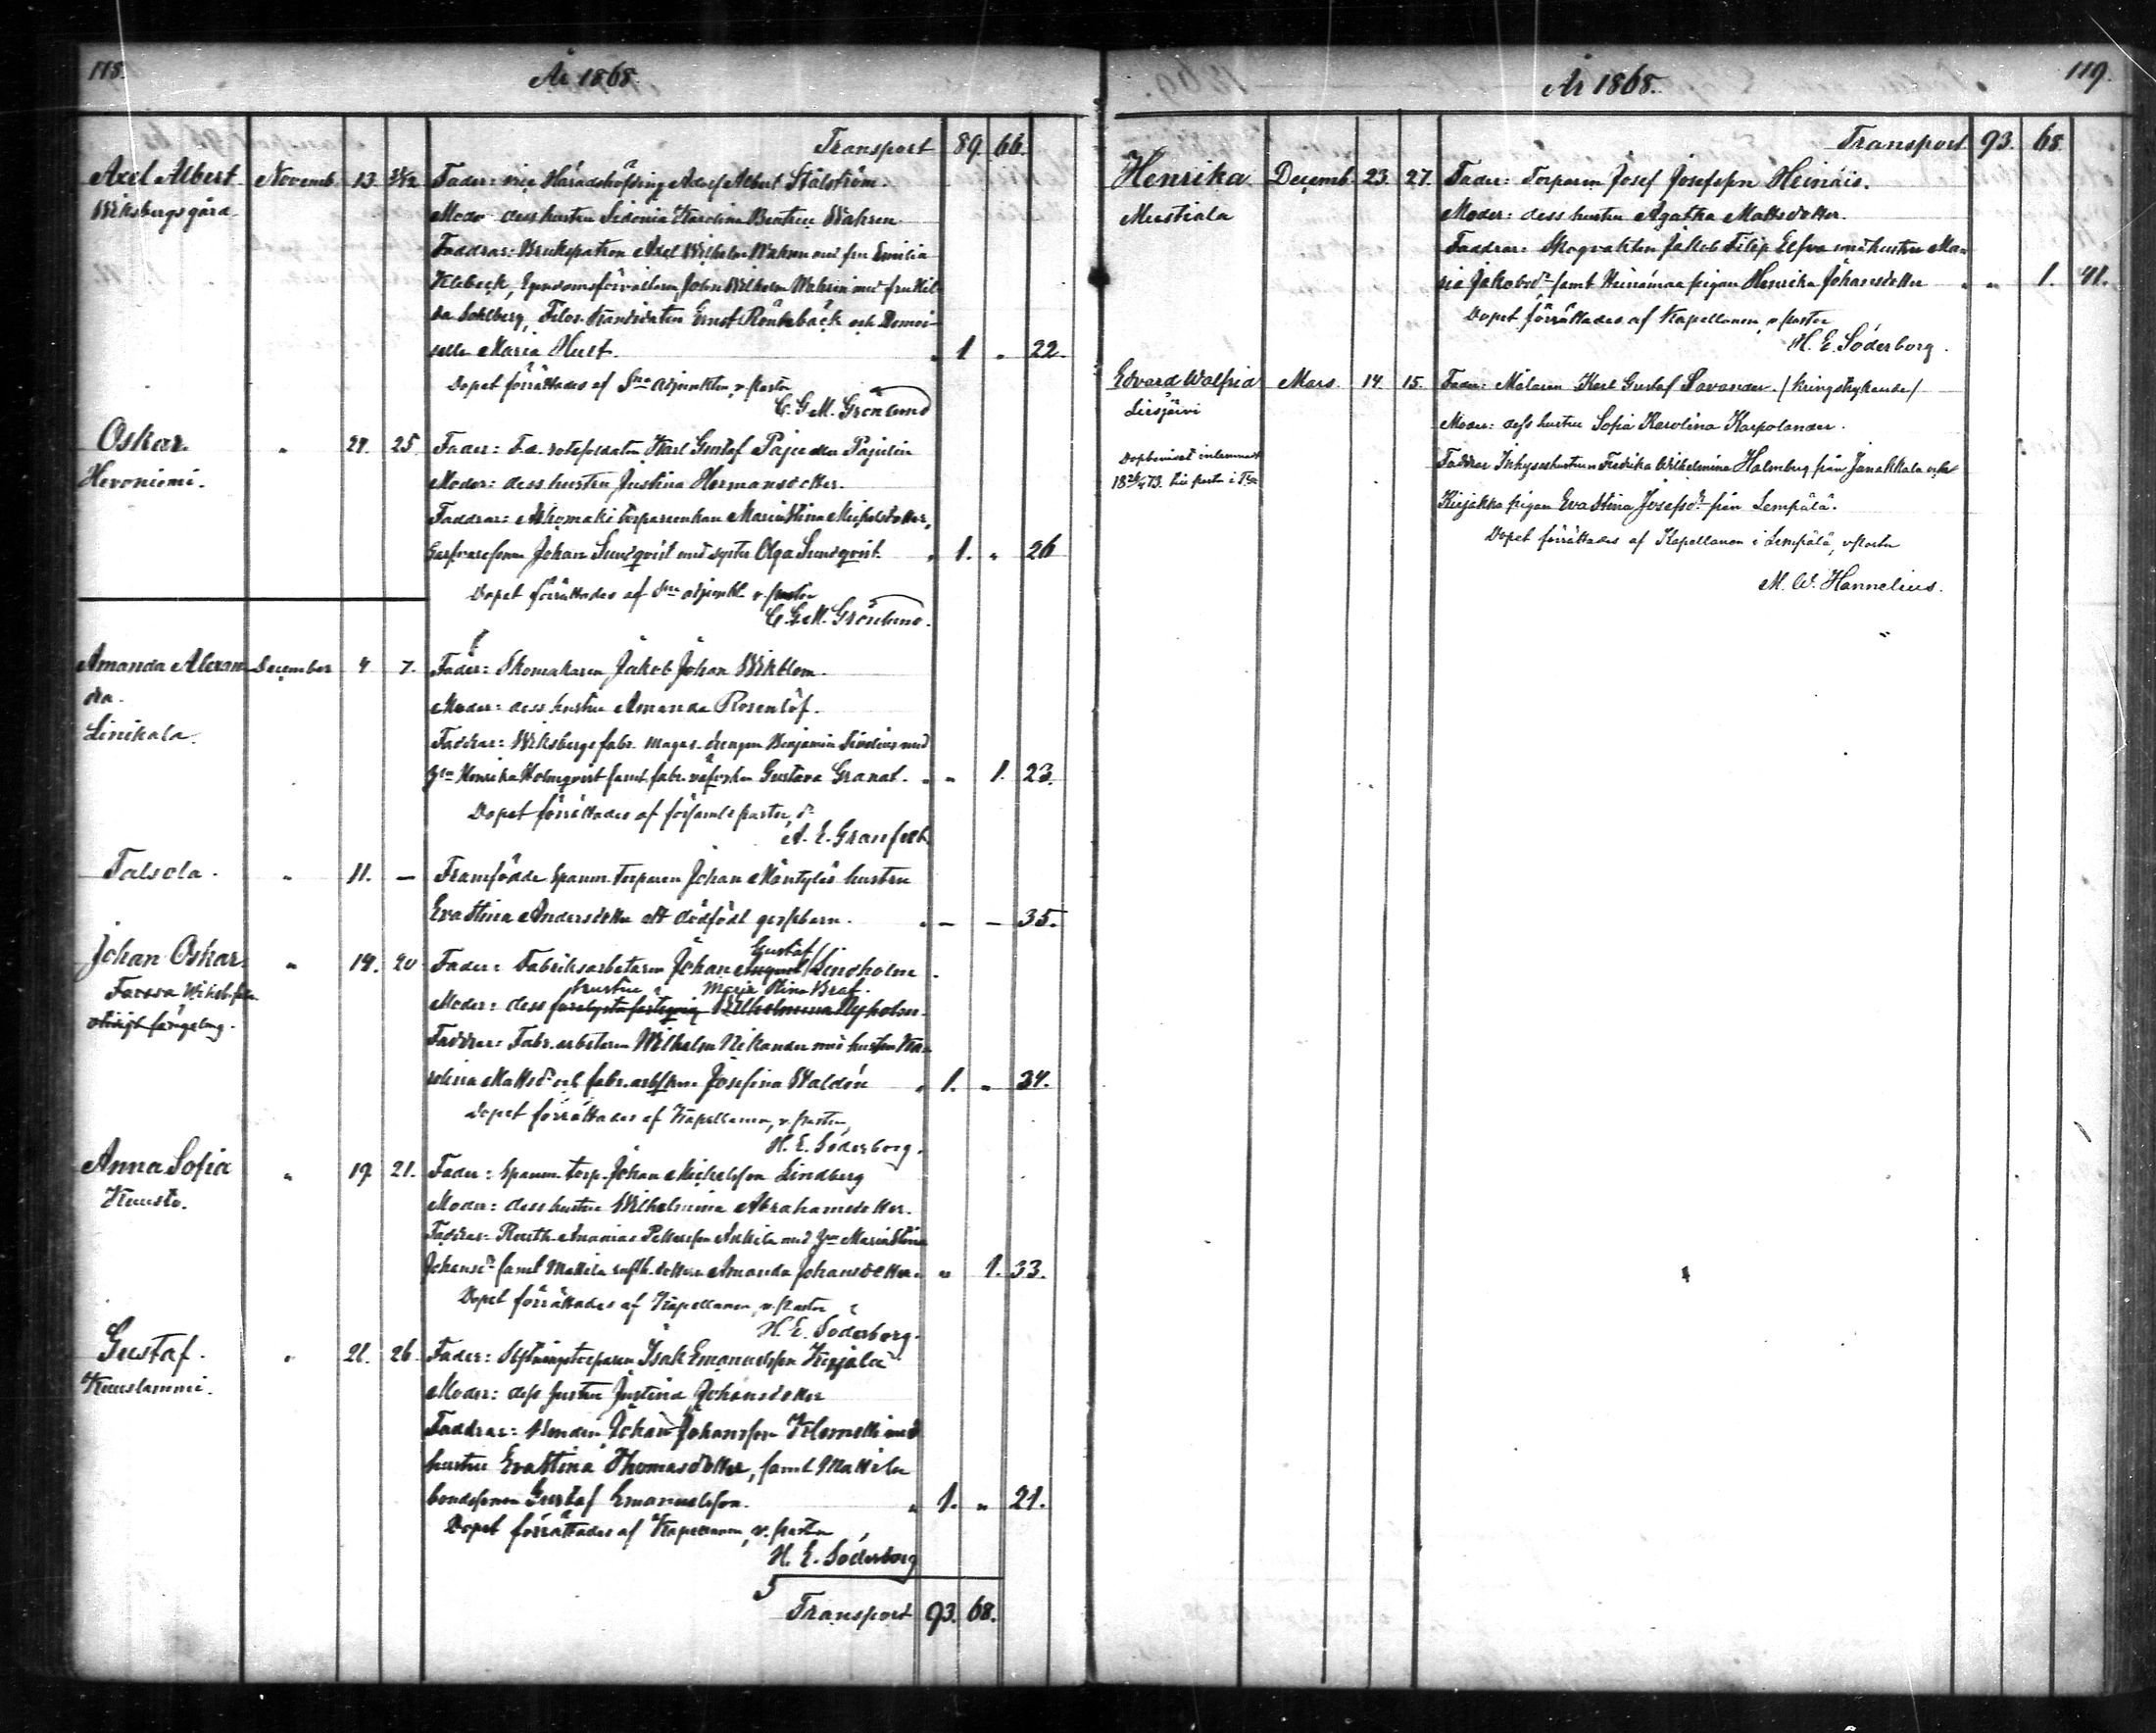 118.
År 1868.
Transport 89. 66.
Axel Albert Novemb. 13. Fader: vice Häradshöfding Adolf Albert Stålström.
Wiksbergs gård. Moder dess hustru Sidonia Karolina Beatrice Wahren
Faddrar: Brukspatron Axel Wilhelm Wahren med fru Emilia
Egendomsförvaltaren John Wilhelm Wahren med fru Hil-
da Sohlberg, Filos. Kandidaten Ernst Rönnbäck och Demoi-
selle Maria Hult. " 1 " 22.
Dopet förrättades af Sne adjunkten, v. pastor
C. G. M. Grönlund
Oskar. " 24. 25. Fader: F.d. rotesoldaten Karl Gustaf Paju eller Pajulin
Hevoniemi. Moder: dess hustru Justina Hermansdotter.
Faddrar: Ahomäki torparenkan Maria Stina Michelsdotter,
Johan Sundqvist med syster Olga Sundqvist. " 1. " 26
Dopet förrättades af Sne adjunkt. v. pastor
C. G. M. Grönlund.
Amanda Alexan- December 4. 7. Fader: Skomakaren Jakob Johan Wikblom.
dra. Moder: dess hustru Amanda Rosenlöf.
Linikala. Faddrar: Wiksbergs fabr. magas. drengen Benjamin Sindenius med
Henrika Holmqvist samt fabr. Gustava Granat. " " 1. 23.
Dopet förrättades af församls pastor,
A. E. Granfelt.
Talsola. " 11. — Framfödde Spannm. torparen Johan Mäntyläs hustru
Eva Stina Andersdotter ett dödfödt gossebarn. " — — 35.
Johan Oskar. " 14. 20 Fader: Fabriksarbetaren Johan August Gustaf Lindholm.
Forssa Wiksb. fabr. Moder: dess hustru Maria Stina Braf. Wilhelmina Nyholm.
Faddrar: Fabr. arbetaren Wilhelm Nikander med hustru Ka-
rolina Mattsdr och fabr. arb. Josefina Waldén " 1. " 34.
Dopet förrättades af Kapellanen, v. pastor,
H. E. Söderborg.
Anna Sofia " 19. 21. Fader: Spannm. torp. Johan Michelsson Lindberg
Kuusto. Moder: dess hustru Wilhelmina Abrahamsdotter.
Faddrar: Rusth. Ananias Pettersson Anttila med Maria Stina
Johansdr samt Mattila rusth. dottern Amanda Johansdotter. " " 1. 33.
Dopet förrättades af Kapellanen, v. pastor
H. E. Söderborg.
Gustaf. " 21. 26. Fader: Isak Emanuelsson Kirjala
Kuuslammi. Moder: dess hustru Justina Johansdotter
Faddrar: Bonden Johan Johansson Klemetti med
hustru Eva Stina Thomasdotter, samt Mattila
bondsonen Gustaf Emanuelsson. " 1. " 21.
Dopet förrättades af Kapellanen, v. pastor
H. E. Söderborg
Transport 93. 68.
119.
År 1868.
Transport 93. 68
Henrika Decemb. 23. 27. Fader: Torparen Josef Josefsson Heinäis.
Mustiala Moder: dess hustru Agatha Mattsdotter.
Faddrar: Skogvakten Jakob Filip Elfva med hustru Ma-
ria Jakobsdr samt Heinämaa pigan Henrika Johansdotter " " 1. 41.
Dopet förrättades af Kapellanen, v. pastor
H. E. Söderborg.
Edvard Walfrid Mars. 14. 15. Fader: Målaren Karl Gustaf Savander. (kringstrykande)
Liesjärvi Moder: dess hustru Sofia Karolina Karpolander.
Dopbeviset inlemnadt Faddrar Inhyseshustrun Fredrika Wilhelmina Holmberg från Janakkala och
Kirjakka pigan Eva Stina Josefsdr från Lempälä.
Dopet förrättades af Kapellanen i Lempälä, v. Pastor
M. W. Hannelius.